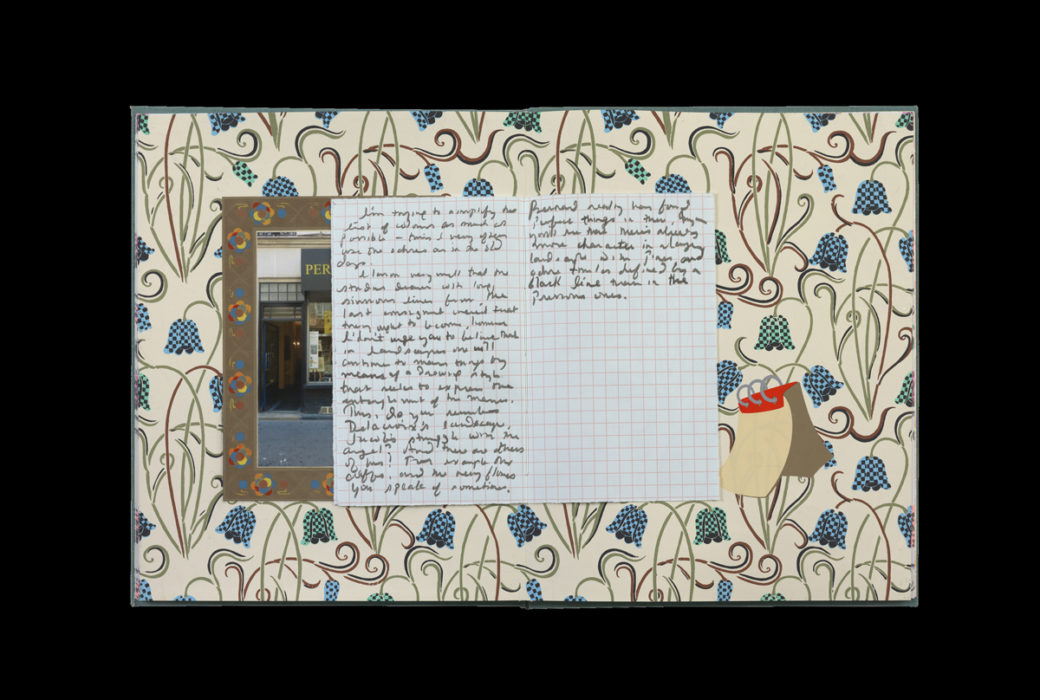 PER
I'm trying to simplify the
list of colours as much as
possible – thus I very often
use the ochres as in the old
days.
I know very well that the
studies drawn with long,
sinuous lines from the
last consignment weren't what
they ought to become, however
I do urge you to believe that
in landscapes one will
continue to mass things by
means of a drawing style
that seeks to express the
entanglement of the masses.
Thus, do you remember
Delacroix's landscape,
Jacob's struggle with the
angel? And there are others
of his! For example the
cliffs, and the very flowers
you speak of sometimes.
Bernard really has found
perfect things in there. Anyway
will see that there's already
more character in
landscape with pines and
ochre trunks defined by a
black line than in the
previous ones.